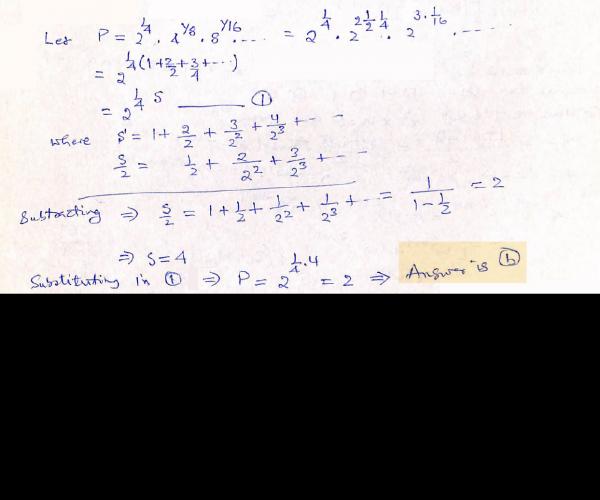 Let P = 2^(1/4) . 4^(1/8) . 8^(1/16) .... = 2^(1/4) . 2^(2 1/2 1/4) . 2^(3 . 1/16) . ....
= 2^(1/4 (1 + 2/2 + 3/4 + ...))
= 2^(1/4 S) ——— ①
where S = 1 + 2/2 + 3/2^2 + 4/2^3 + ....
S/2 = 1/2 + 2/2^2 + 3/2^3 + ...
Subtracting ⇒ S/2 = 1 + 1/2 + 1/2^2 + 1/2^3 + ... = 1/(1 - 1/2) = 2
⇒ S = 4
Substituting in ① ⇒ P = 2^(1/4 . 4) = 2 ⇒ Answer is ⓑ